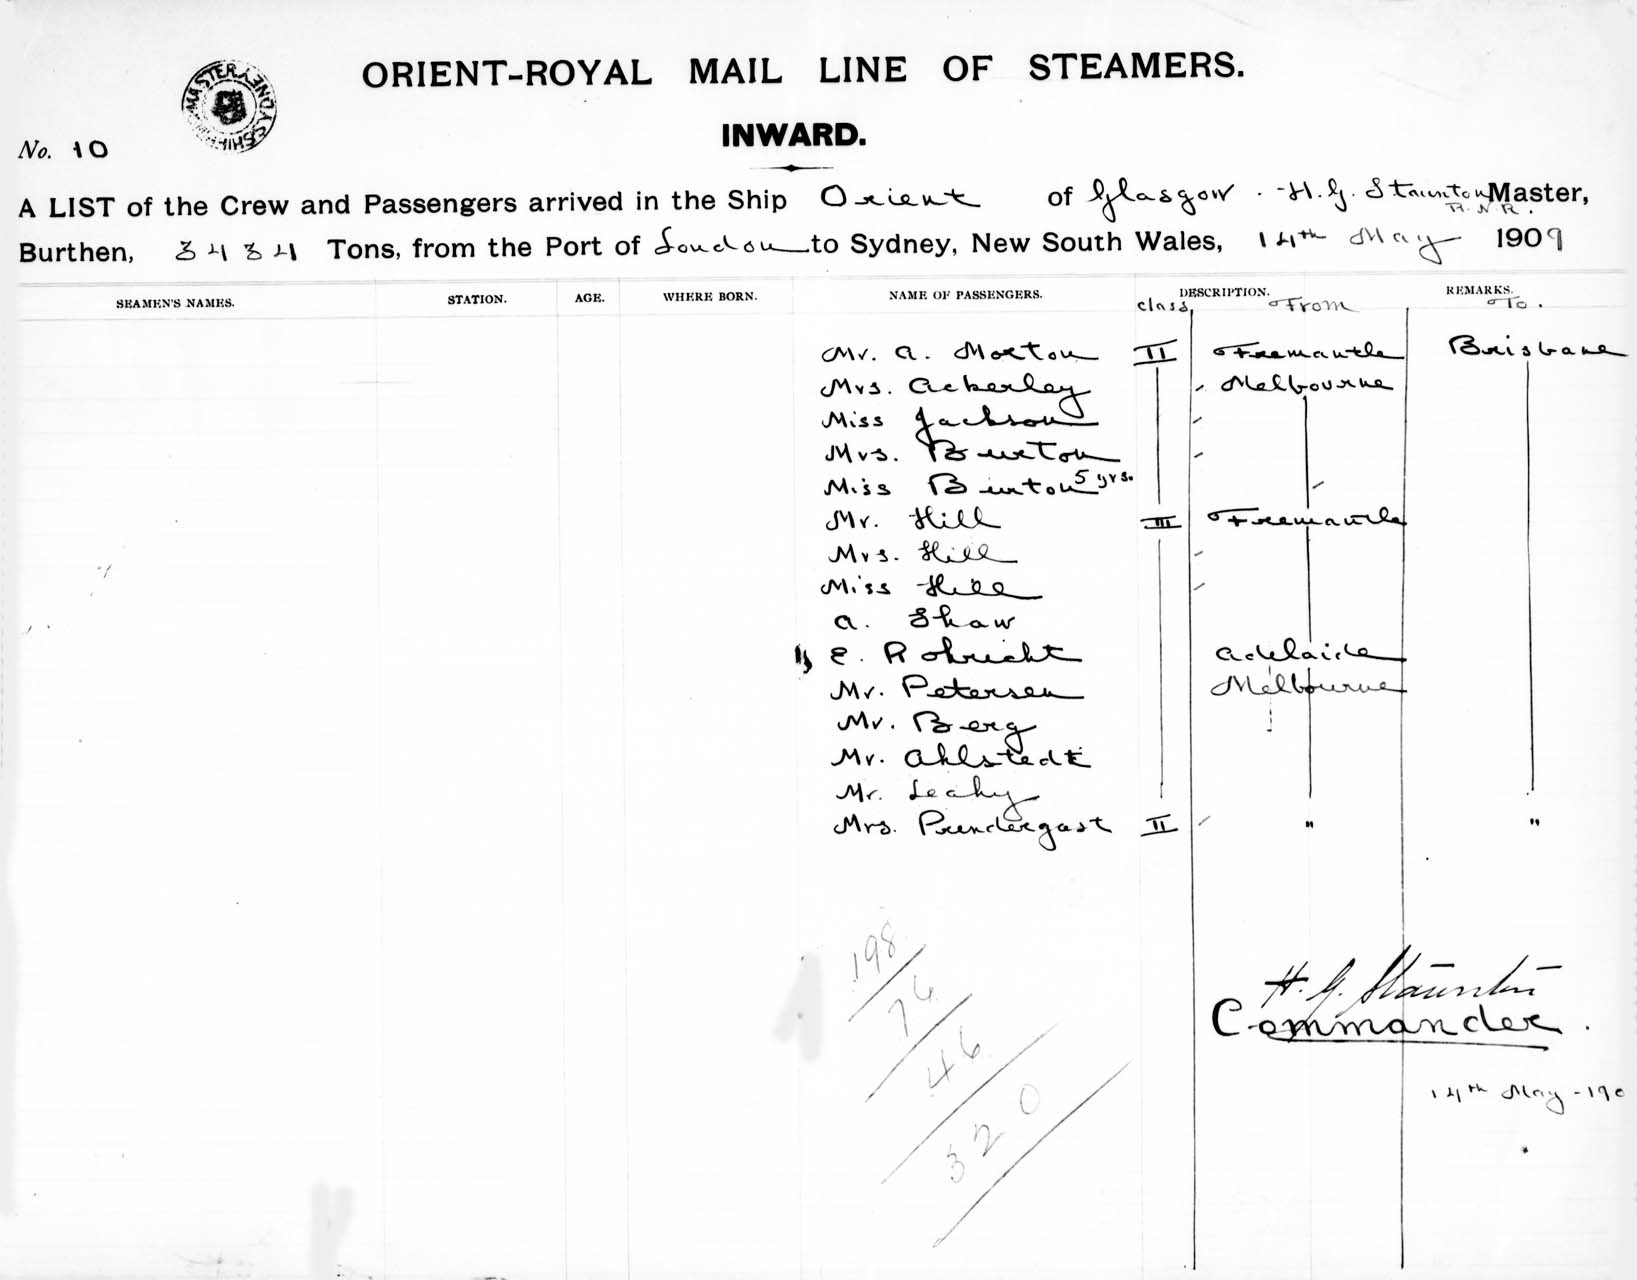 ORIENT-ROYAL MAIL LINE OF STEAMERS.
SHIPPING MASTER SYDNEY
INWARD.
No. 10
A LIST of the Crew and Passengers arrived in the Ship Orient of Glasgow. H. G. Staunton R.N.R. Master,
Burthen, 3434 Tons, from the Port of London to Sydney, New South Wales, 14th May 1909
SEAMEN'S NAMES. STATION. AGE. WHERE BORN. NAME OF PASSENGERS. DESCRIPTION. REMARKS.
class From To.
Mr. A. Morton II Fremantle Brisbane
Mrs. Ackerley Melbourne
Miss Jackson
Mrs. Burton
Miss Burton 5 yrs.
Mr. Hill III Fremantle
Mrs. Hill
Miss Hill
A. Shaw
E. Robricht Adelaide
Mr. Petersen Melbourne
Mr. Berg
Mr. Ahlstedt
Mr. Leahy
Mrs. Prendergast II " "
198
76
46
320
H. G. Staunton
Commander.
14th May - 190